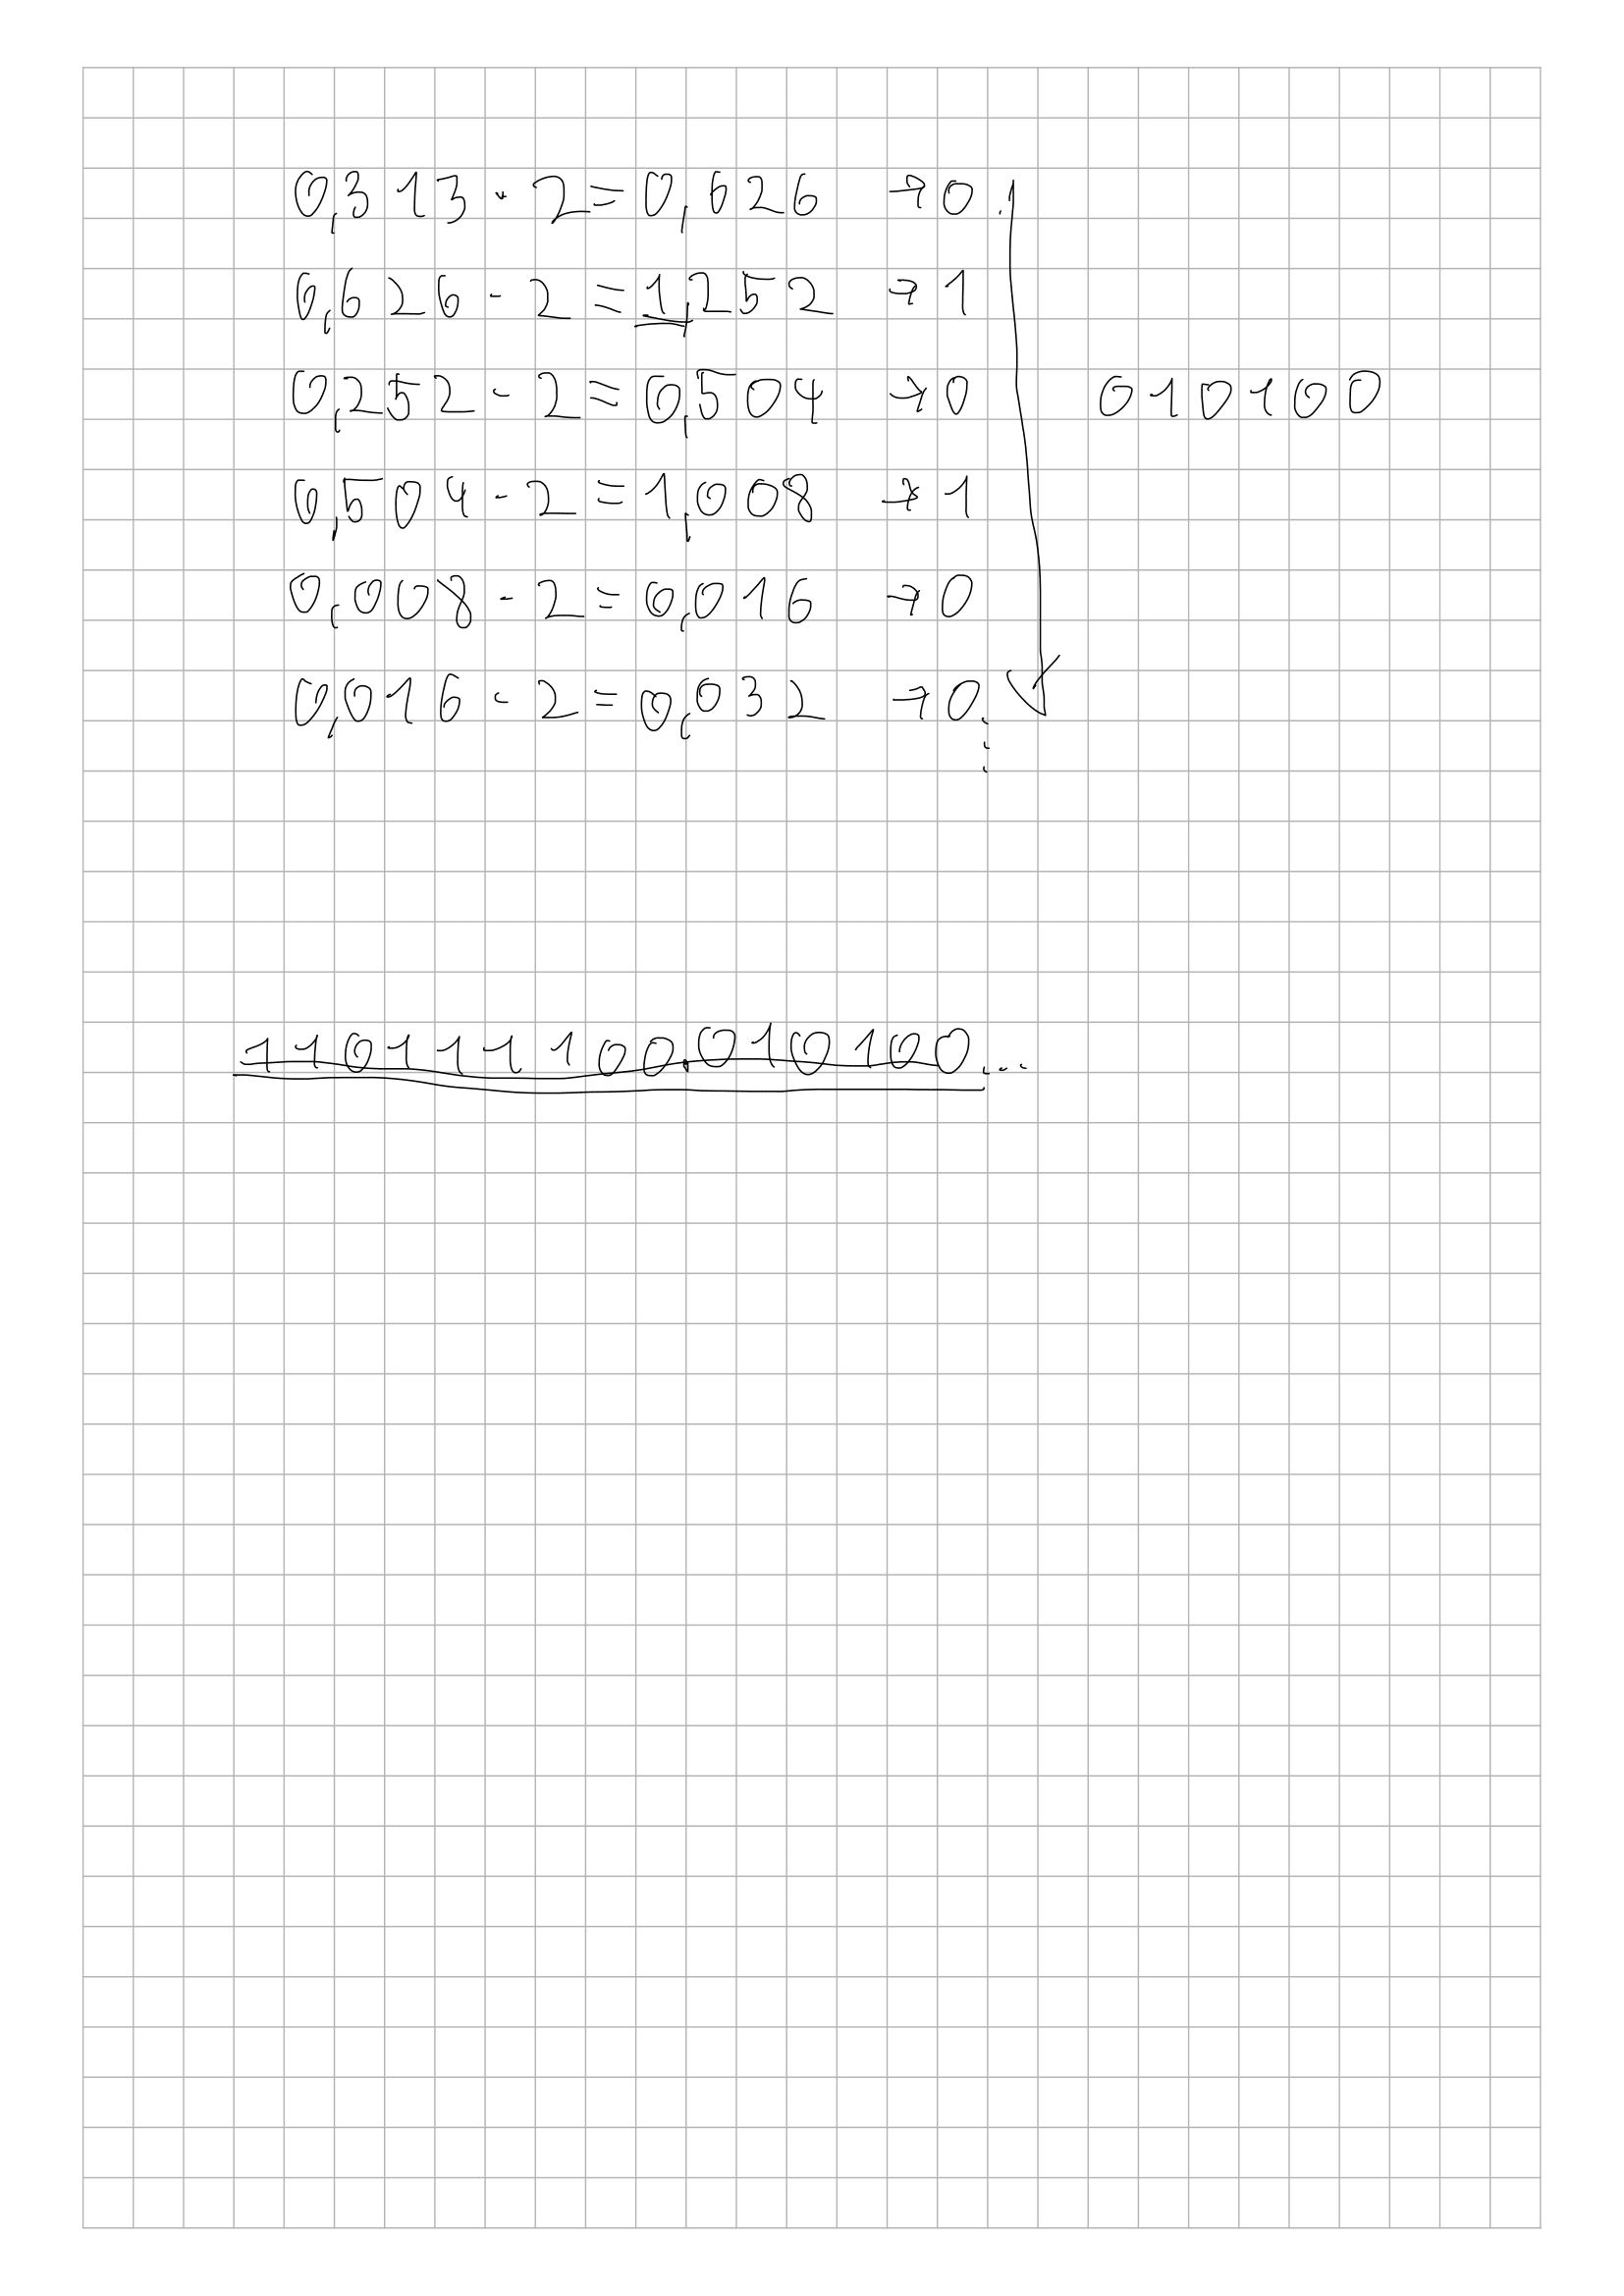 0,313 · 2 = 0,626 → 0
0,626 · 2 = 1,252 → 1
0,252 · 2 = 0,504 → 0 010100
0,504 · 2 = 1,008 → 1
0,008 · 2 = 0,016 → 0
0,016 · 2 = 0,032 → 0
⋮
110111100,010100...